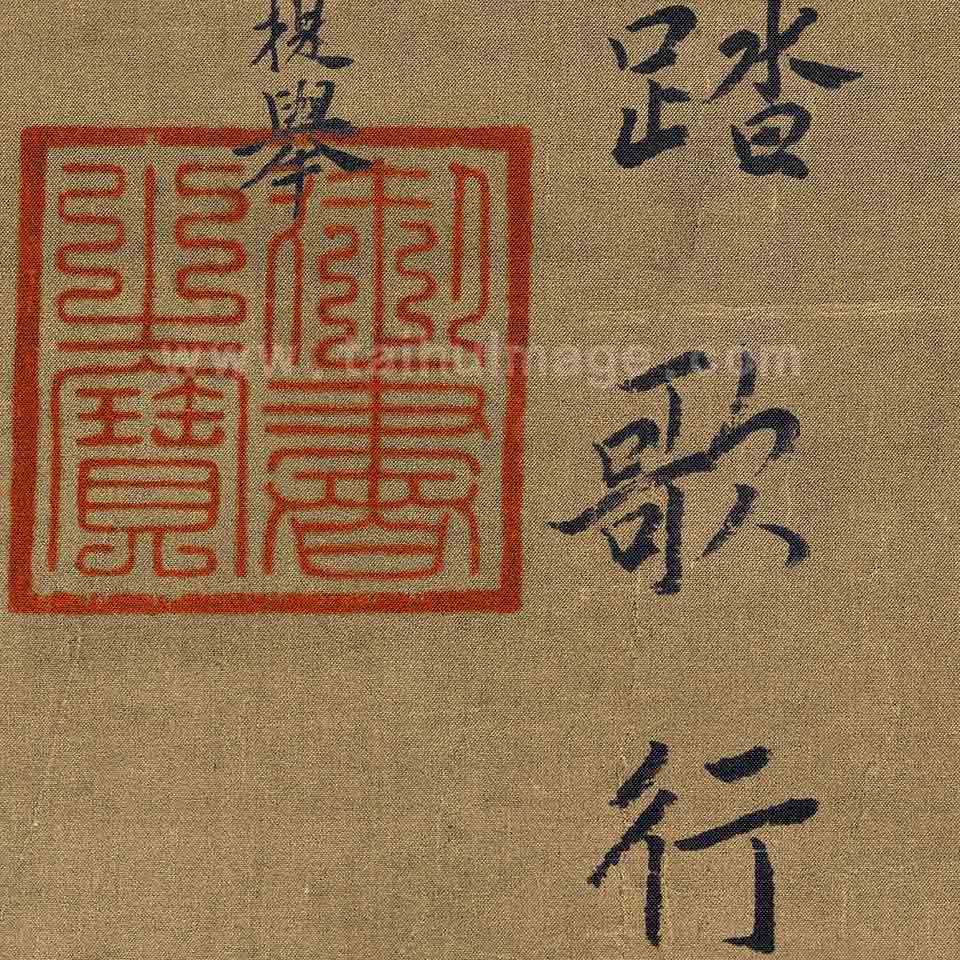 踏歌行
提舉
御書
之寶
www.taihuImage.com